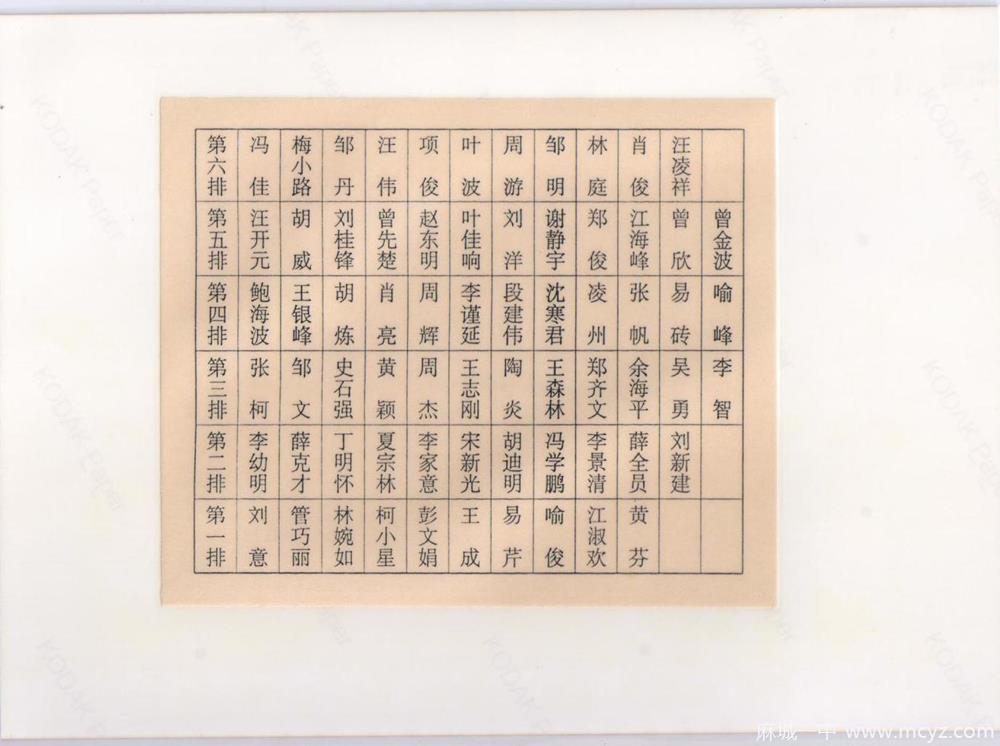 第六排 冯佳 梅小路 邹丹 汪伟 项俊 叶波 周游 邹明 林庭 肖俊 汪凌祥
第五排 汪开元 胡威 刘桂锋 曾先楚 赵东明 叶佳响 刘洋 谢静宇 郑俊 江海峰 曾欣 曾金波
第四排 鲍海波 王银峰 胡炼 肖亮 周辉 李谨延 段建伟 沈寒君 凌州 张帆 易砖 喻峰
第三排 张柯 邹文 史石强 黄颖 周杰 王志刚 陶炎 王森林 郑齐文 余海平 吴勇 李智
第二排 李幼明 薛克才 丁明怀 夏宗林 李家意 宋新光 胡迪明 冯学鹏 李景清 薛全员 刘新建
第一排 刘意 管巧丽 林婉如 柯小星 彭文娟 王成 易芹 喻俊 江淑欢 黄芬
KODAK Paper
KODAK Paper
KODAK Paper
KODAK Paper
KODAK Paper
KODAK Paper
麻城一中 www.mcyz.com